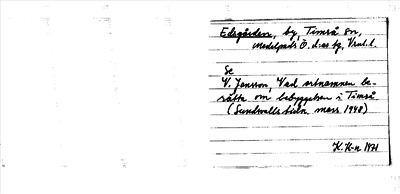 Edsgården, by, Timrå sn,
Medelpads Ö. d:as tg, Vnl. l.
Se
V. Jansson, Vad ortnamnen be-
rätta om bebyggelsen i Timrå
(Sundsvalls tidn. mars 1948)
K. H-n 1971